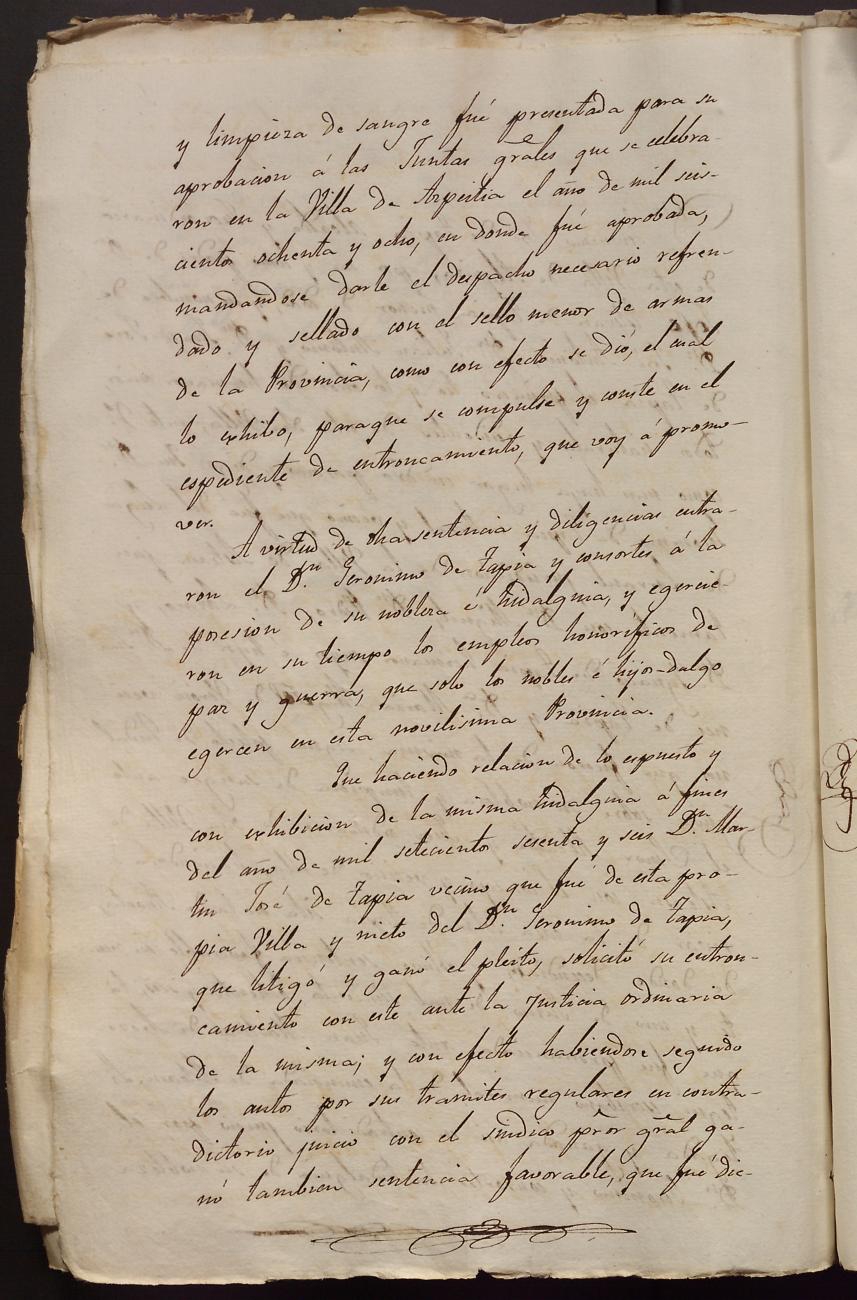 y limpieza de sangre fué presentada para su
aprobacion á las Juntas grāles que se celebra-
ron en la Villa de Azpeitia el año de mil seis-
cientos ochenta y ocho, en donde fué aprobada,
mandandose darle el despacho necesario refren-
dado y sellado con el sello menor de armas
de la Provincia, como con efecto se dió, el cual
lo exhibo, paraque se compulse y conste en el
espediente de entroncamiento, que voy á promo-
ver.
A virtud de dha sentencia y diligencias entra-
ron el Dn. Geronimo de Tapia y consortes á la
posesion de su nobleza é hidalguia, y egercie-
ron en su tiempo los empleos honoríficos de
paz y guerra, que solo los nobles é hijos-dalgo
egercen en esta novilisima Provincia.
Que haciendo relacion de lo espuesto y
con exhibicion de la misma hidalguia á fines
del año de mil setecientos sesenta y seis Dn. Mar-
tin José de Tapia vecino que fué de esta pro-
pia Villa y nieto del Dn. Geronimo de Tapia,
que litigó y ganó el pleito, solicitó su entron-
camiento con este ante la Justicia ordinaria
de la misma; y con efecto habiendose seguido
los autos por sus tramites regulares en contra-
dictorio juicio con el sindico prōr grāl ga-
nó tambien sentencia favorable, que fué dic-